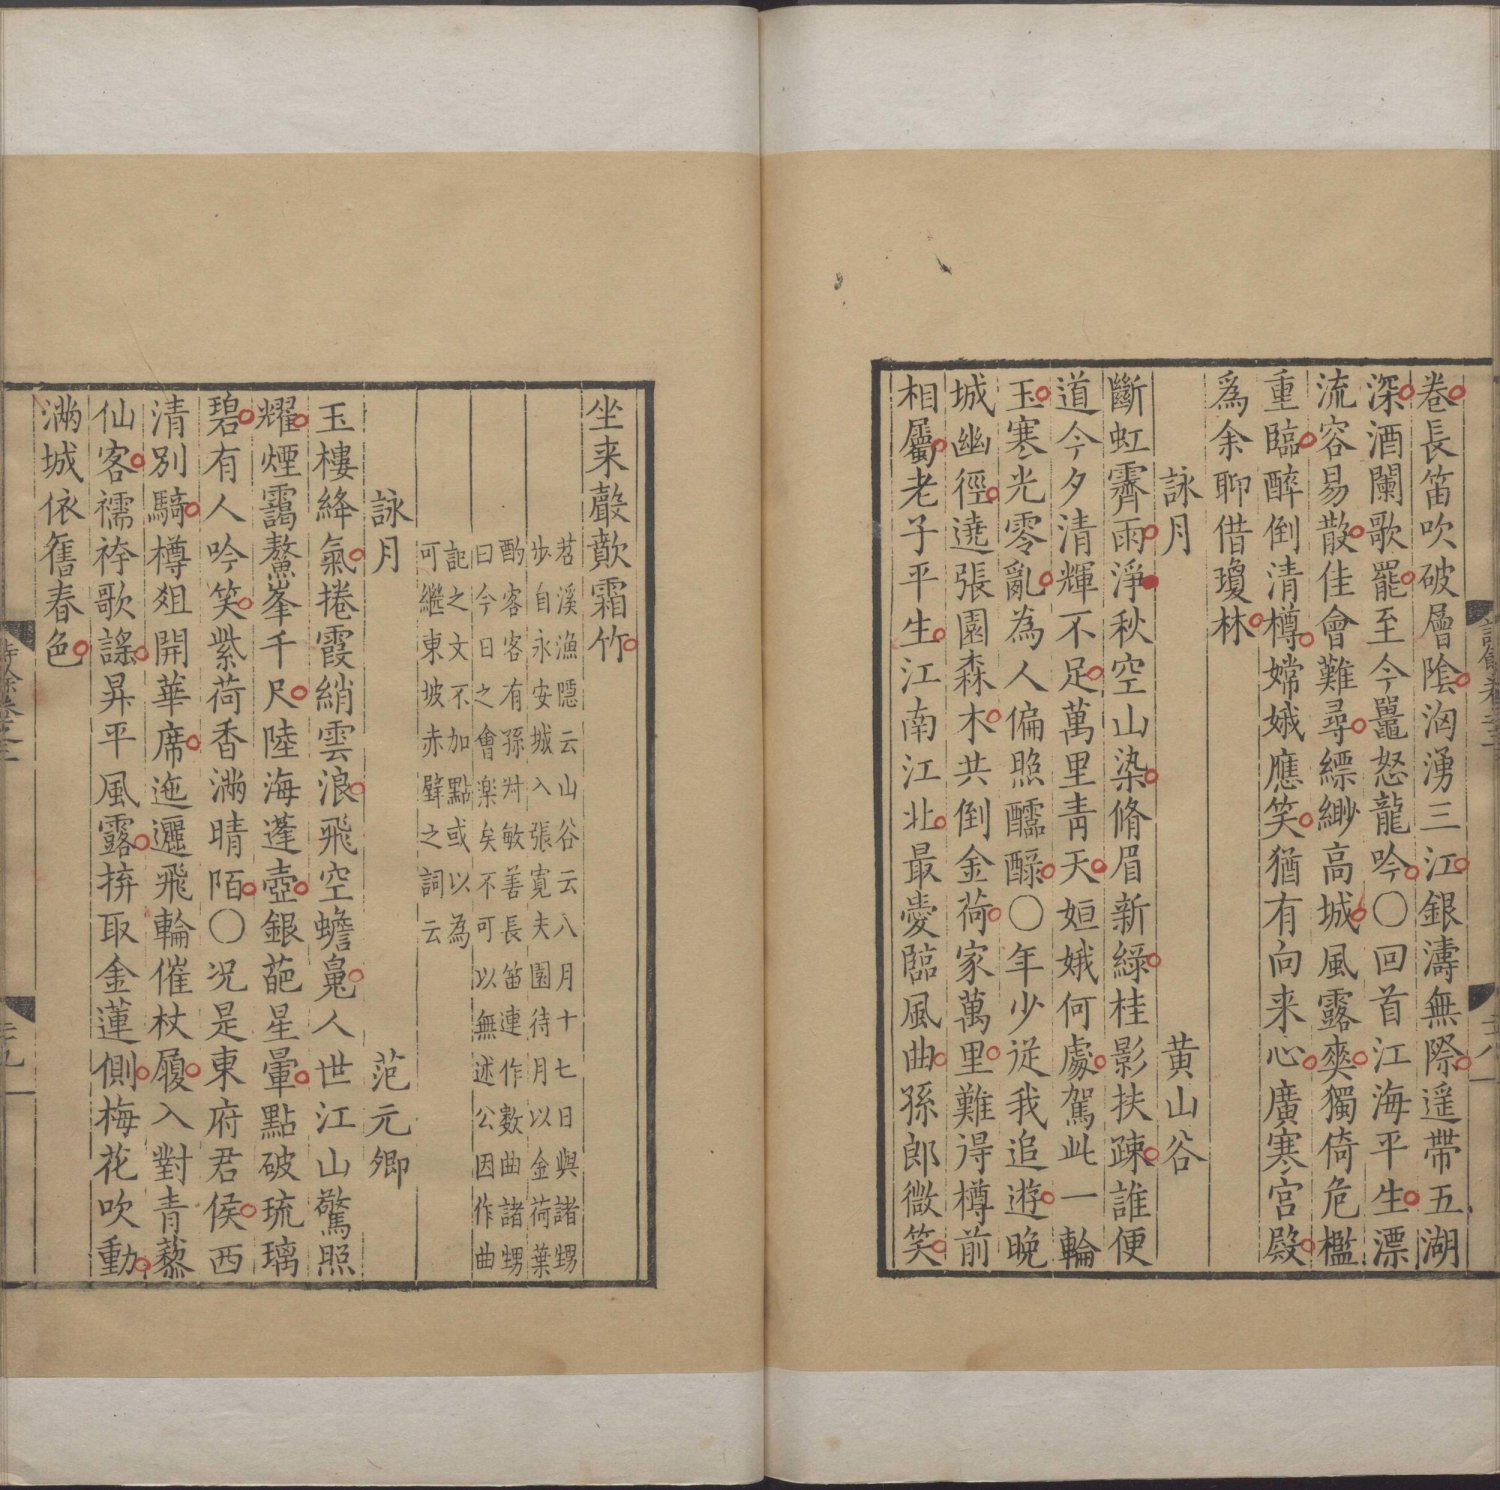 卷長笛吹破層陰洶湧三江銀濤無際遥帶五湖
深酒闌歌罷至今鼉怒龍吟〇回首江海平生漂
流容易散佳會難尋縹緲高城風露爽獨倚危檻
重臨醉倒清樽嫦娥應笑猶有向来心廣寒宫殿
爲余聊借瓊林
詠月 黄山谷
斷虹霽雨淨秋空山染脩眉新綠桂影扶踈誰便
道今夕清輝不足萬里青天姮娥何處駕此一輪
玉寒光零亂為人偏照醽醁〇年少従我追遊晚
城幽徑遶張園森木共倒金荷家萬里難得樽前
相屬老子平生江南江北最愛臨風曲孫郎微笑
坐来聲歕霜竹
苕溪漁隱云山谷云八月十七日與諸甥
步自永安城入張寛夫園待月以金荷葉
酌客客有孫叔敏善長笛連作數曲諸甥
曰今日之會樂矣不可以無述公因作曲
記之文不加點或以為
可繼東坡赤壁之詞云
詠月 范元卿
玉樓絳氣捲霞綃雲浪飛空蟾皃人世江山驚照
耀煙靄鰲峯千尺陸海蓬壺銀葩星暈點破琉璃
碧有人吟笑紫荷香满晴陌〇况是東府君侯西
清別騎樽俎開華席迤邐飛輪催杖履入對青藜
仙客襦袴歌謡昇平風露拚取金蓮側梅花吹動
满城依舊春色